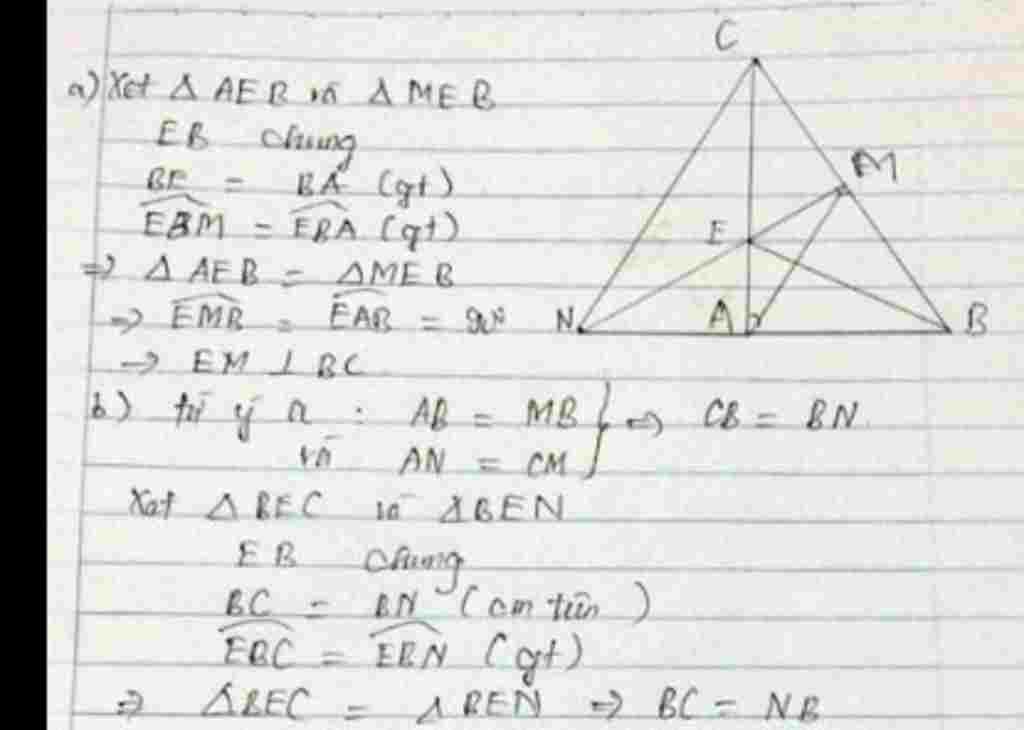 a) Xét Δ AEB và Δ MEB
EB chung
BE = BA (gt)
EBM = EBA (gt)
=> Δ AEB = ΔMEB
=> EMB = EAB = 90°
=> EM ⊥ BC
b) từ ý a : AB = MB } => CB = BN
và AN = CM
Xét Δ BEC và ΔBEN
EB chung
BC = BN (cm trên)
EBC = EBN (gt)
=> ΔBEC = ΔBEN => BC = NB
C
M
E
N
A
B